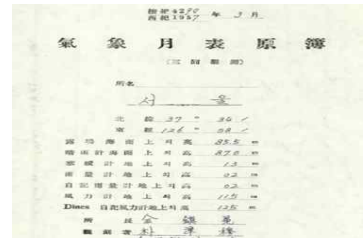 檀紀4290
西紀1957 年 3月
氣象月表原簿
(三回觀測)
所名
서울
北緯 37° 34′
東經 126° 58′
露場海面上의高 85.5 m
晴雨計海面上의高 87.0 m
寒暖計地上의高 1.5 m
雨量計地上의高 0.2 m
自記雨量計地上의高 0.2 m
風力計地上의高 11.5 m
Dines 自記風力計地上의高 12.5 m
所長 金鎭
觀測者